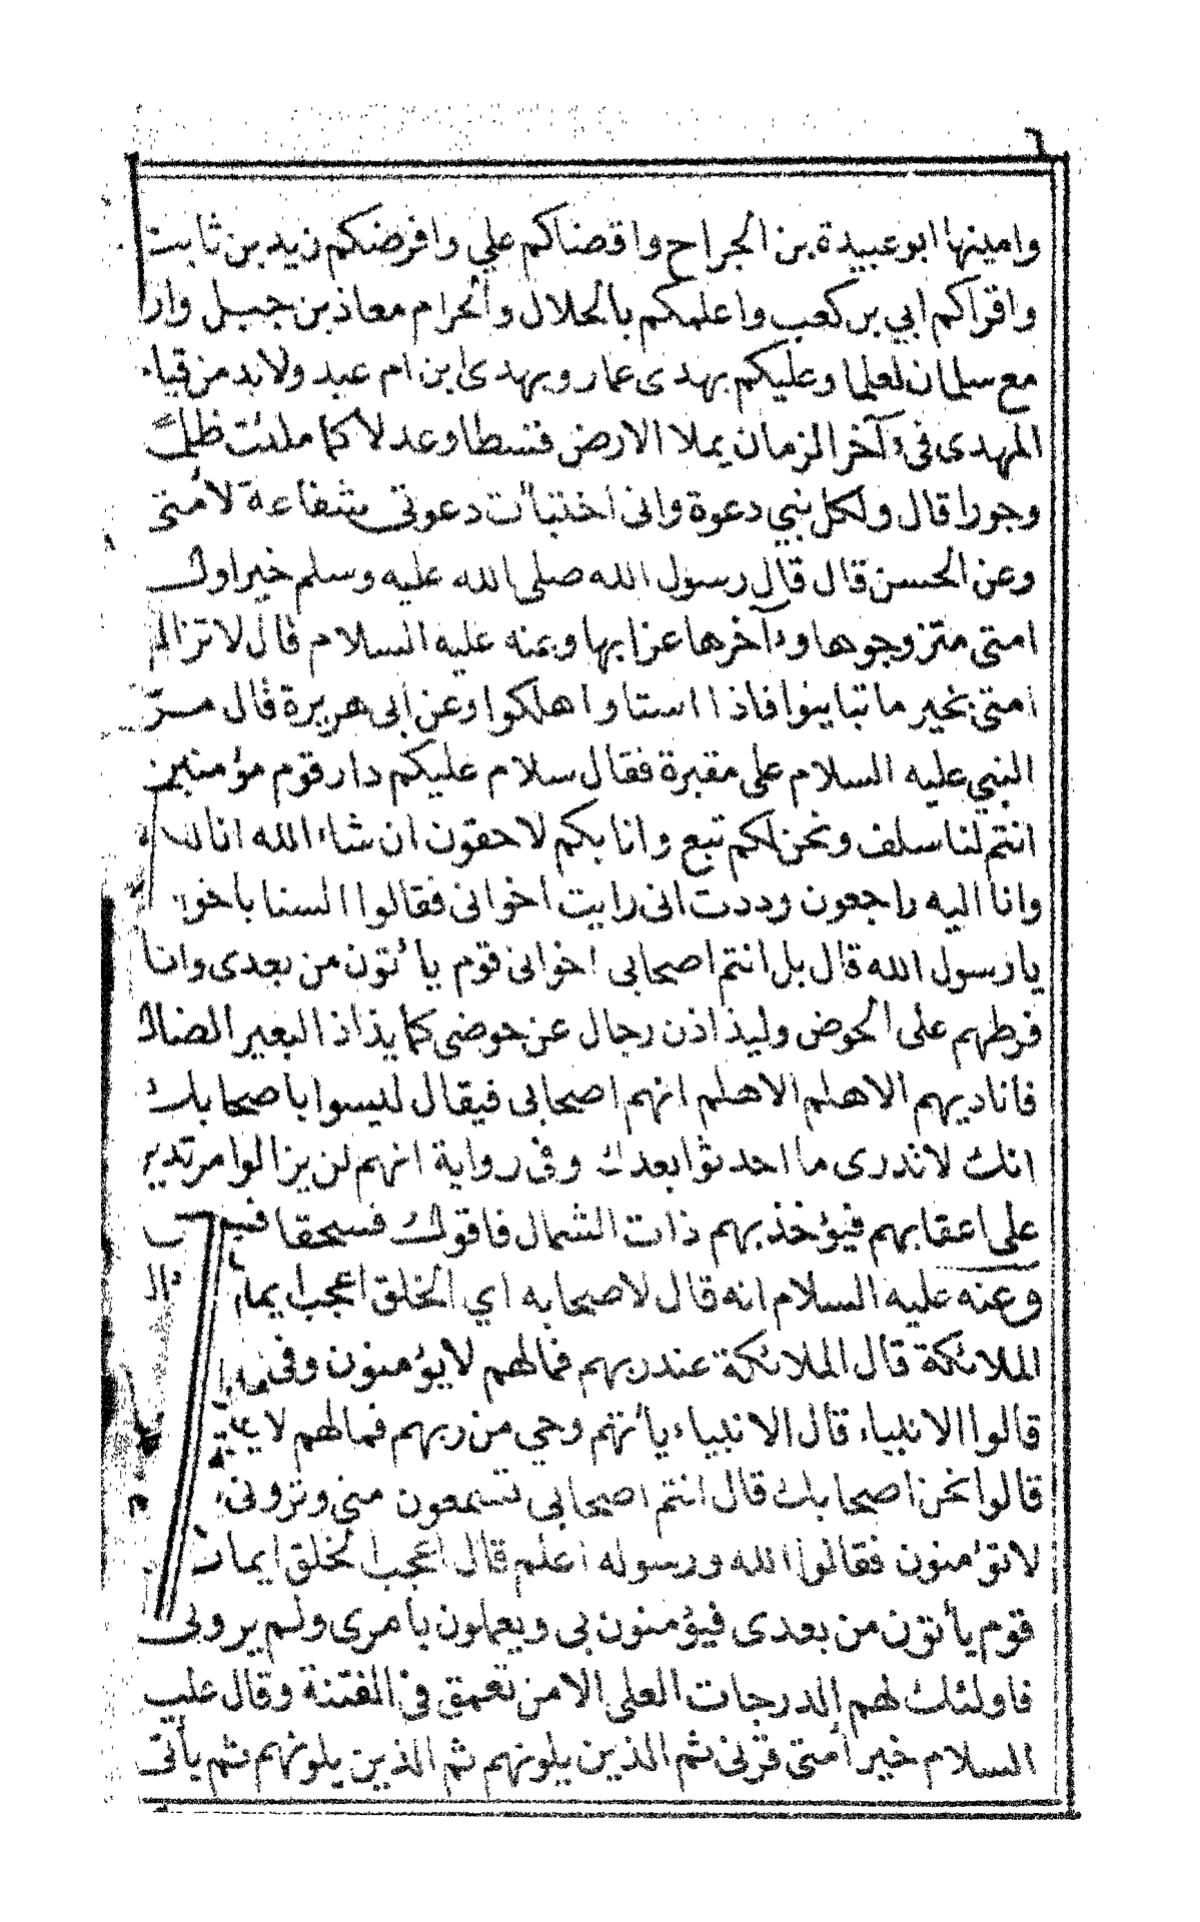 ٦
وامينها ابو عبيدة بن الجراح واقضاكم علي وافرضكم زيد بن ثابت
واقراكم ابي بن كعب واعلمكم بالحلال والحرام معاذ بن جبل وان
مع سلمان لعلما وعليكم بهدى عمار وبهدى ابن ام عبد ولابد من قيام
المهدى فى آخر الزمان يملا الارض قسطا وعدلا كما ملئت ظلما
وجورا قال ولكل نبي دعوة وانى اختبأت دعوتى شفاعة لأمتى
وعن الحسن قال قال رسول الله صلى الله عليه وسلم خير اول
امتى متزوجوها وآخرها عزابها وعنه عليه السلام قال لا تزال
امتى بخير ما تباينوا فاذا استاووا هلكوا وعن ابى هريرة قال مرّ
النبي عليه السلام على مقبرة فقال سلام عليكم دار قوم مؤمنين
انتم لنا سلف ونحن لكم تبع وانا بكم لاحقون ان شاء الله انا لله
وانا اليه راجعون وددت انى رايت اخوانى فقالوا السنا باخو
يا رسول الله قال بل انتم اصحابى اخوانى قوم يأتون من بعدى وانا
فرطهم على الحوض وليذاذن رجال عن حوضى كما يذاذ البعير الضال
فاناديهم الا هلم الا هلم انهم اصحابى فيقال ليسوا باصحابك
انك لا تدرى ما احدثوا بعدك وفى رواية انهم لن يزالوا مرتدين
على اعقابهم فيؤخذ بهم ذات الشمال فاقول فسحقا
وعنه عليه السلام انه قال لاصحابه اي الخلق اعجب ايما
الملائكة قال الملائكة عند ربهم فمالهم لا يؤمنون وفى
قالوا الانبياء قال الانبياء يأتهم وحي من ربهم فمالهم لا
قالوا نحن اصحابك قال انتم اصحابى تسمعون منى وترونى
لا تؤمنون فقالوا الله ورسوله اعلم قال اعجب الخلق ايمانا
قوم يأتون من بعدى فيؤمنون بى ويعملون بأمرى ولم يرونى
فاولئك لهم الدرجات العلى الا من تعمق فى الفتنة وقال عليه
السلام خير امتى قرنى ثم الذين يلونهم ثم الذين يلونهم ثم يأتى